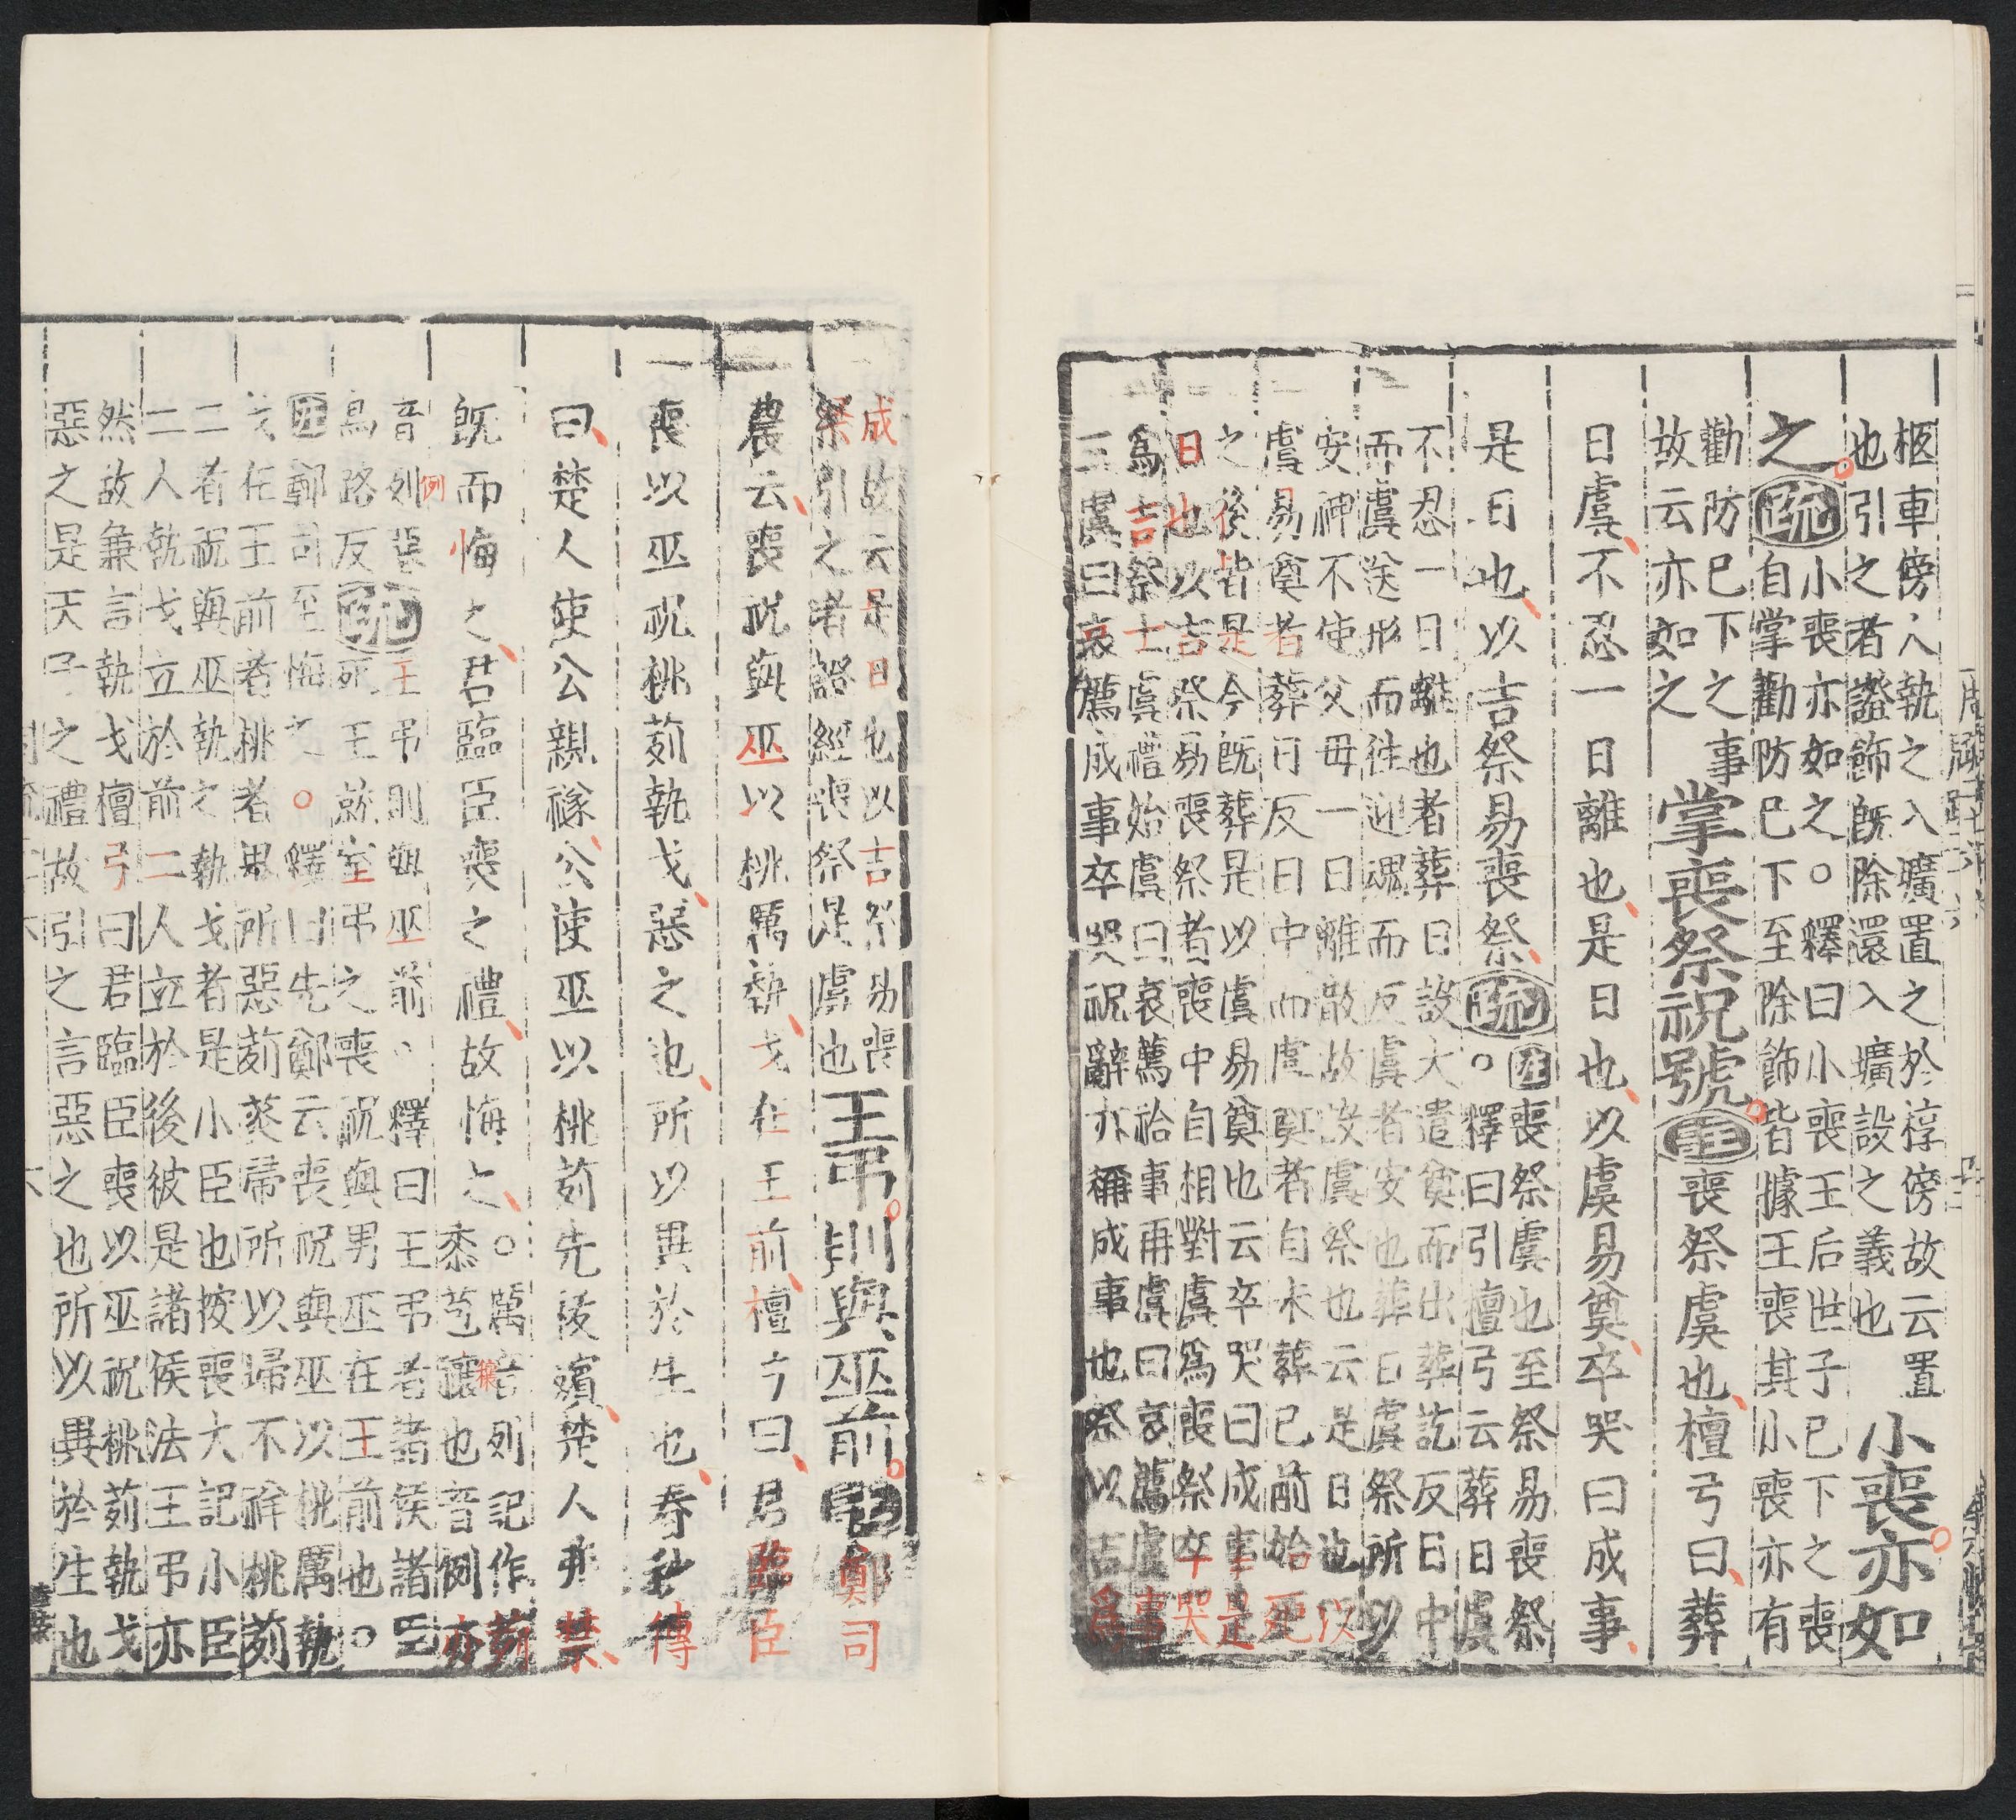 柩車傍人執之入壙置之於椁傍故云置
也引之者證飾旣除還入壙設之義也
小喪亦如
之
疏
小喪亦如之○釋曰小喪王后世子已下之喪
自掌勸防已下至除飾皆據王喪其小喪亦有
勸防已下之事
故云亦如之
掌喪祭祝號
注
喪祭虞也檀弓曰葬
日虞不忍一日離也是日也以虞易奠卒哭曰成事
是日也以吉祭易喪祭
疏
注喪祭虞也至祭易喪祭
○釋曰引檀弓云葬日虞
不忍一日離也者葬日設大遣奠而出葬訖反日中
而虞送形而往迎魂而反虞者安也葬日虞祭所以
安神不使父母一日離散故設虞祭也云是日也以
虞易奠者葬日反日中而虞奠者自未葬已前始死
之後皆是今旣葬是以虞易奠也云卒哭曰成事是
日也以吉祭易喪祭者喪中自相對虞爲喪祭卒哭
爲吉祭士虞禮始虞曰哀薦祫事再虞曰哀薦虞事
三虞曰哀薦成事卒哭祝辭亦稱成事也祭以吉爲
成故云是日也以吉祭易喪
祭引之者證經喪祭是虞也
王弔則與巫前
注
鄭司
農云喪祝與巫以桃厲執戈在王前檀弓曰君臨臣
喪以巫祝桃茢執戈惡之也所以異於生也春秋傳
曰楚人使公親禭公使巫以桃茢先祓殯楚人弗禁
旣而悔之君臨臣喪之禮故悔之○厲音列記作茢
黍芑穰也音例亦
音列惡
例
穰
烏路反
疏
王弔則與巫前○釋曰王弔者諸侯諸臣
死王就室弔之喪祝與男巫在王前也○
注鄭司至悔之○釋曰先鄭云喪祝與巫以桃厲執
戈在王前者桃者鬼所惡茢萑帚所以埽不祥桃茢
二者祝與巫執之執戈者是小臣也按喪大記小臣
二人執戈立於前二人立於後彼是諸侯法王弔亦
然故兼言執戈檀弓曰君臨臣喪以巫祝桃茢執戈
惡之是天子之禮故引之言惡之也所以異於生也